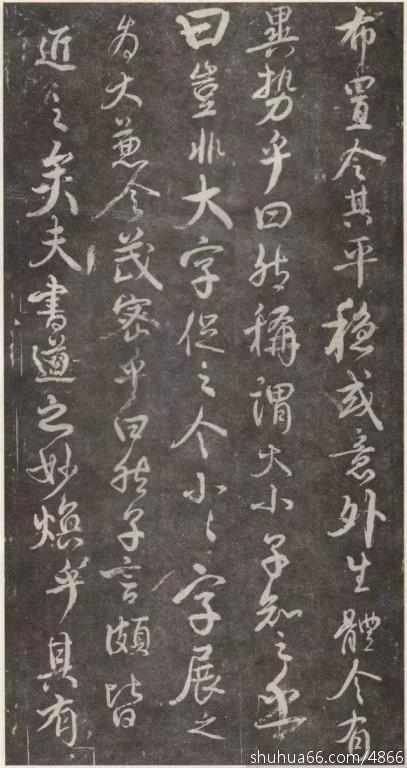 布置令其平穩或意外生體令有
異勢乎曰然稱謂大小子知之乎
曰豈非大字促之令小〻字展之
為大兼令茂密乎曰然子言頗皆
近之矣夫書道之妙煥乎其有
shuhua66.com/4866